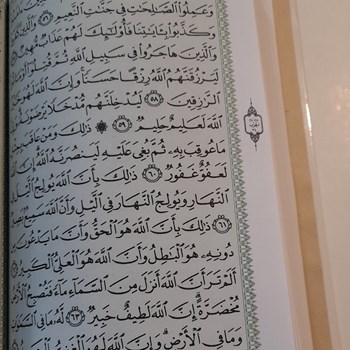 وَعَمِلُوا۟ ٱلصَّٰلِحَٰتِ فِى جَنَّٰتِ ٱلنَّعِيمِ ٥٦ وَٱلَّذِينَ
وَكَذَّبُوا۟ بِـَٔايَٰتِنَا فَأُو۟لَٰٓئِكَ لَهُمْ عَذَابٌ مُّهِينٌ
وَٱلَّذِينَ هَاجَرُوا۟ فِى سَبِيلِ ٱللَّهِ ثُمَّ قُتِلُوٓا۟ أَوْ
لَيَرْزُقَنَّهُمُ ٱللَّهُ رِزْقًا حَسَنًا وَإِنَّ ٱللَّهَ لَهُوَ
ٱلرَّٰزِقِينَ ٥٨ لَيُدْخِلَنَّهُم مُّدْخَلًا يَرْضَوْنَهُۥ
ٱللَّهَ لَعَلِيمٌ حَلِيمٌ ٥٩ ذَٰلِكَ وَمَنْ عَاقَبَ
مَا عُوقِبَ بِهِۦ ثُمَّ بُغِىَ عَلَيْهِ لَيَنصُرَنَّهُ ٱللَّهُ إِنَّ
لَعَفُوٌّ غَفُورٌ ٦٠ ذَٰلِكَ بِأَنَّ ٱللَّهَ يُولِجُ
ٱلنَّهَارِ وَيُولِجُ ٱلنَّهَارَ فِى ٱلَّيْلِ وَأَنَّ ٱللَّهَ سَمِيعٌۢ
٦١ ذَٰلِكَ بِأَنَّ ٱللَّهَ هُوَ ٱلْحَقُّ وَأَنَّ مَا يَدْعُونَ
دُونِهِۦ هُوَ ٱلْبَٰطِلُ وَأَنَّ ٱللَّهَ هُوَ ٱلْعَلِىُّ ٱلْكَبِيرُ
أَلَمْ تَرَ أَنَّ ٱللَّهَ أَنزَلَ مِنَ ٱلسَّمَآءِ مَآءً فَتُصْبِحُ ٱلْأَرْضُ
مُخْضَرَّةً إِنَّ ٱللَّهَ لَطِيفٌ خَبِيرٌ ٦٣ لَّهُۥ مَا فِى ٱلسَّمَٰوَٰتِ
وَمَا فِى ٱلْأَرْضِ وَإِنَّ ٱللَّهَ لَهُوَ ٱلْغَنِىُّ